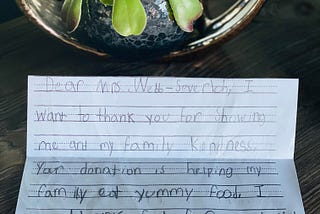 Dear Mrs. I
want to thank you for showing
me and my family kindness.
Your donation is helping my
family eat yummy food. I